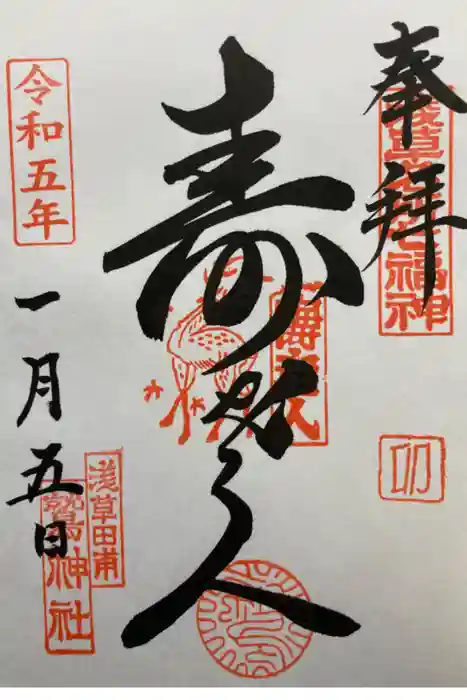 奉拝
浅草名所七福神
卯
寿老人
寿老人
令和五年
一月五日
浅草田甫
鷲神社